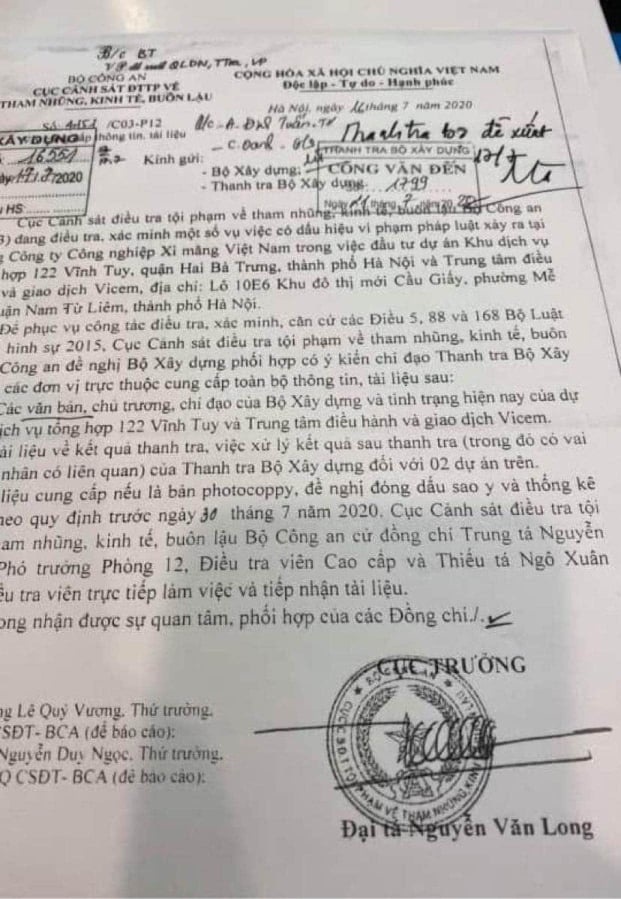 B/c BT
BỘ CÔNG AN
CỤC CẢNH SÁT ĐTTP VỀ
THAM NHŨNG, KINH TẾ, BUÔN LẬU
CỘNG HÒA XÃ HỘI CHỦ NGHĨA VIỆT NAM
Độc lập - Tự do - Hạnh phúc
Hà Nội, ngày 16 tháng 7 năm 2020
/C03-P12
thông tin, tài liệu
XÂY DỰNG
16551
/2020
HS:
Thanh tra bộ đề xuất
Kính gửi:
- Bộ Xây dựng;
- Thanh tra Bộ Xây dựng.
THANH TRA BỘ XÂY DỰNG
CÔNG VĂN ĐẾN
1799
Cục Cảnh sát điều tra tội phạm về tham nhũng, kinh tế, buôn lậu Bộ Công an
) đang điều tra, xác minh một số vụ việc có dấu hiệu vi phạm pháp luật xảy ra tại
Công ty Công nghiệp Xi măng Việt Nam trong việc đầu tư dự án Khu dịch vụ
hợp 122 Vĩnh Tuy, quận Hai Bà Trưng, thành phố Hà Nội và Trung tâm điều
và giao dịch Vicem, địa chỉ: Lô 10E6 Khu đô thị mới Cầu Giấy, phường Mễ
uận Nam Từ Liêm, thành phố Hà Nội.
Để phục vụ công tác điều tra, xác minh, căn cứ các Điều 5, 88 và 168 Bộ Luật
hình sự 2015, Cục Cảnh sát điều tra tội phạm về tham nhũng, kinh tế, buôn
Công an đề nghị Bộ Xây dựng phối hợp có ý kiến chỉ đạo Thanh tra Bộ Xây
các đơn vị trực thuộc cung cấp toàn bộ thông tin, tài liệu sau:
Các văn bản, chủ trương, chỉ đạo của Bộ Xây dựng và tình trạng hiện nay của dự
ịch vụ tổng hợp 122 Vĩnh Tuy và Trung tâm điều hành và giao dịch Vicem.
ài liệu về kết quả thanh tra, việc xử lý kết quả sau thanh tra (trong đó có vai
nhân có liên quan) của Thanh tra Bộ Xây dựng đối với 02 dự án trên.
liệu cung cấp nếu là bản photocoppy, đề nghị đóng dấu sao y và thống kê
heo quy định trước ngày 30 tháng 7 năm 2020. Cục Cảnh sát điều tra tội
am nhũng, kinh tế, buôn lậu Bộ Công an cử đồng chí Trung tá Nguyễn
Phó trưởng Phòng 12, Điều tra viên Cao cấp và Thiếu tá Ngô Xuân
ều tra viên trực tiếp làm việc và tiếp nhận tài liệu.
ong nhận được sự quan tâm, phối hợp của các Đồng chí./.
CỤC TRƯỞNG
ng Lê Quý Vương, Thứ trưởng,
CSĐT- BCA (để báo cáo);
Nguyễn Duy Ngọc, Thứ trưởng,
Q CSĐT- BCA (để báo cáo);
Đại tá Nguyễn Văn Long